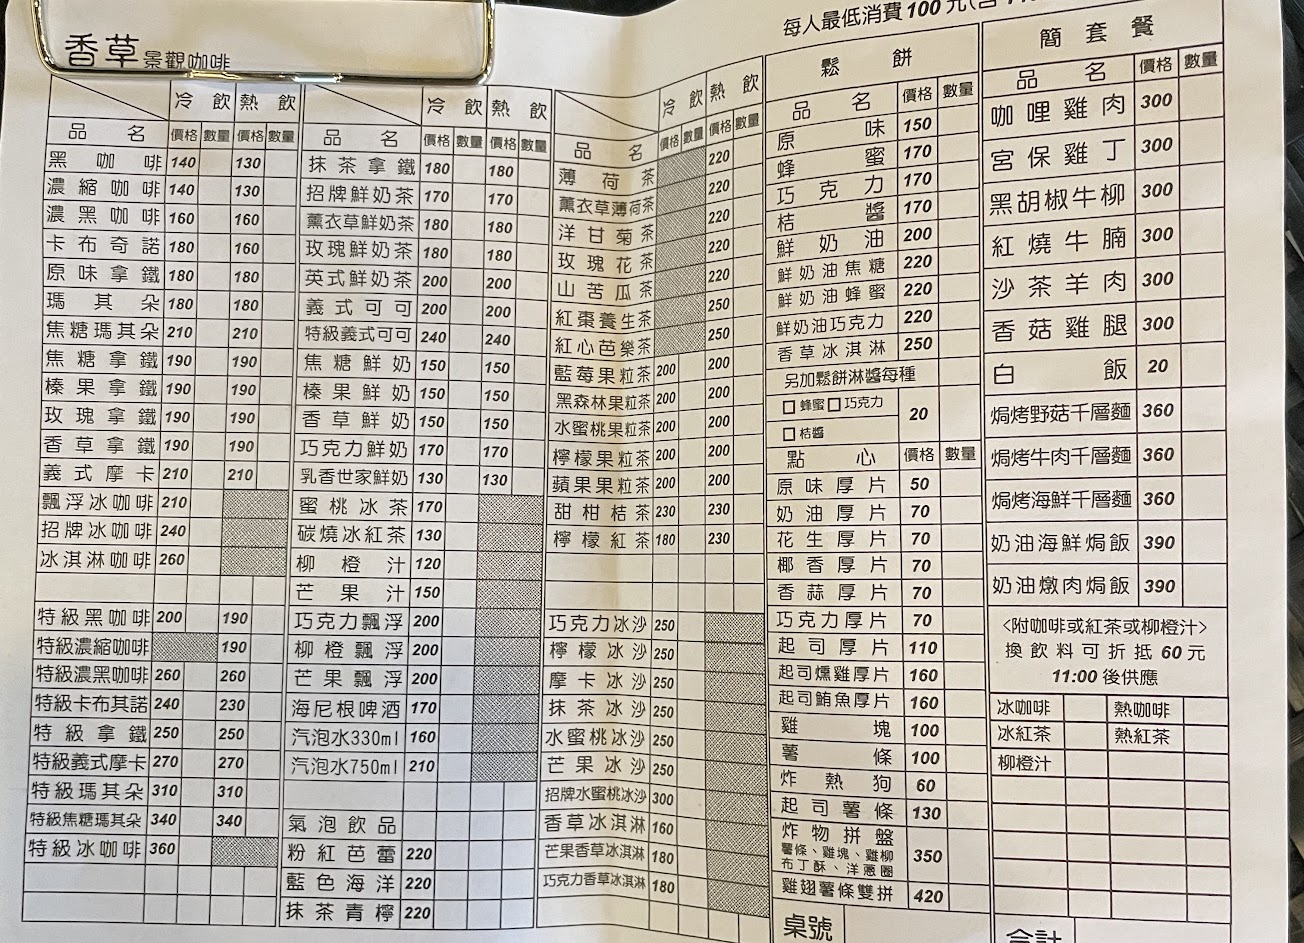 香草景觀咖啡
每人最低消費100元
品名 冷飲 熱飲
價格 數量 價格 數量
黑咖啡 140 130
濃縮咖啡 140 130
濃黑咖啡 160 160
卡布奇諾 180 160
原味拿鐵 180 180
瑪其朵 180 180
焦糖瑪其朵 210 210
焦糖拿鐵 190 190
榛果拿鐵 190 190
玫瑰拿鐵 190 190
香草拿鐵 190 190
義式摩卡 210 210
飄浮冰咖啡 210
招牌冰咖啡 240
冰淇淋咖啡 260
特級黑咖啡 200 190
特級濃縮咖啡 190
特級濃黑咖啡 260 260
特級卡布其諾 240 230
特級拿鐵 250 250
特級義式摩卡 270 270
特級瑪其朵 310 310
特級焦糖瑪其朵 340 340
特級冰咖啡 360
品名 冷飲 熱飲
價格 數量 價格 數量
抹茶拿鐵 180 180
招牌鮮奶茶 170 170
薰衣草鮮奶茶 180 180
玫瑰鮮奶茶 180 180
英式鮮奶茶 200 200
義式可可 200 200
特級義式可可 240 240
焦糖鮮奶 150 150
榛果鮮奶 150 150
香草鮮奶 150 150
巧克力鮮奶 170 170
乳香世家鮮奶 130 130
蜜桃冰茶 170
碳燒冰紅茶 130
柳橙汁 120
芒果汁 150
巧克力飄浮 200
柳橙飄浮 200
芒果飄浮 200
海尼根啤酒 170
汽泡水330ml 160
汽泡水750ml 210
氣泡飲品
粉紅芭蕾 220
藍色海洋 220
抹茶青檸 220
品名 冷飲 熱飲
價格 數量 價格 數量
薄荷茶 220
薰衣草薄荷茶 220
洋甘菊茶 220
玫瑰花茶 220
山苦瓜茶 220
紅棗養生茶 250
紅心芭樂茶 250
藍莓果粒茶 200 200
黑森林果粒茶 200 200
水蜜桃果粒茶 200 200
檸檬果粒茶 200 200
蘋果果粒茶 200 200
甜柑桔茶 230 230
檸檬紅茶 180 230
巧克力冰沙 250
檸檬冰沙 250
摩卡冰沙 250
抹茶冰沙 250
水蜜桃冰沙 250
芒果冰沙 250
招牌水蜜桃冰沙 300
香草冰淇淋 160
芒果香草冰淇淋 180
巧克力香草冰淇淋 180
鬆餅
品名 價格 數量
原味 150
蜂蜜 170
巧克力 170
桔醬 170
鮮奶油 200
鮮奶油焦糖 220
鮮奶油蜂蜜 220
鮮奶油巧克力 220
香草冰淇淋 250
另加鬆餅淋醬每種
□蜂蜜□巧克力 20
□桔醬
點心 價格 數量
原味厚片 50
奶油厚片 70
花生厚片 70
椰香厚片 70
香蒜厚片 70
巧克力厚片 70
起司厚片 110
起司燻雞厚片 160
起司鮪魚厚片 160
雞塊 100
薯條 100
炸熱狗 60
起司薯條 130
炸物拼盤 350
薯條、雞塊、雞柳
布丁酥、洋蔥圈
雞翅薯條雙拼 420
桌號
簡套餐
品名 價格 數量
咖哩雞肉 300
宮保雞丁 300
黑胡椒牛柳 300
紅燒牛腩 300
沙茶羊肉 300
香菇雞腿 300
白飯 20
焗烤野菇千層麵 360
焗烤牛肉千層麵 360
焗烤海鮮千層麵 360
奶油海鮮焗飯 390
奶油燉肉焗飯 390
<附咖啡或紅茶或柳橙汁>
換飲料可折抵60元
11:00後供應
冰咖啡 熱咖啡
冰紅茶 熱紅茶
柳橙汁
合計